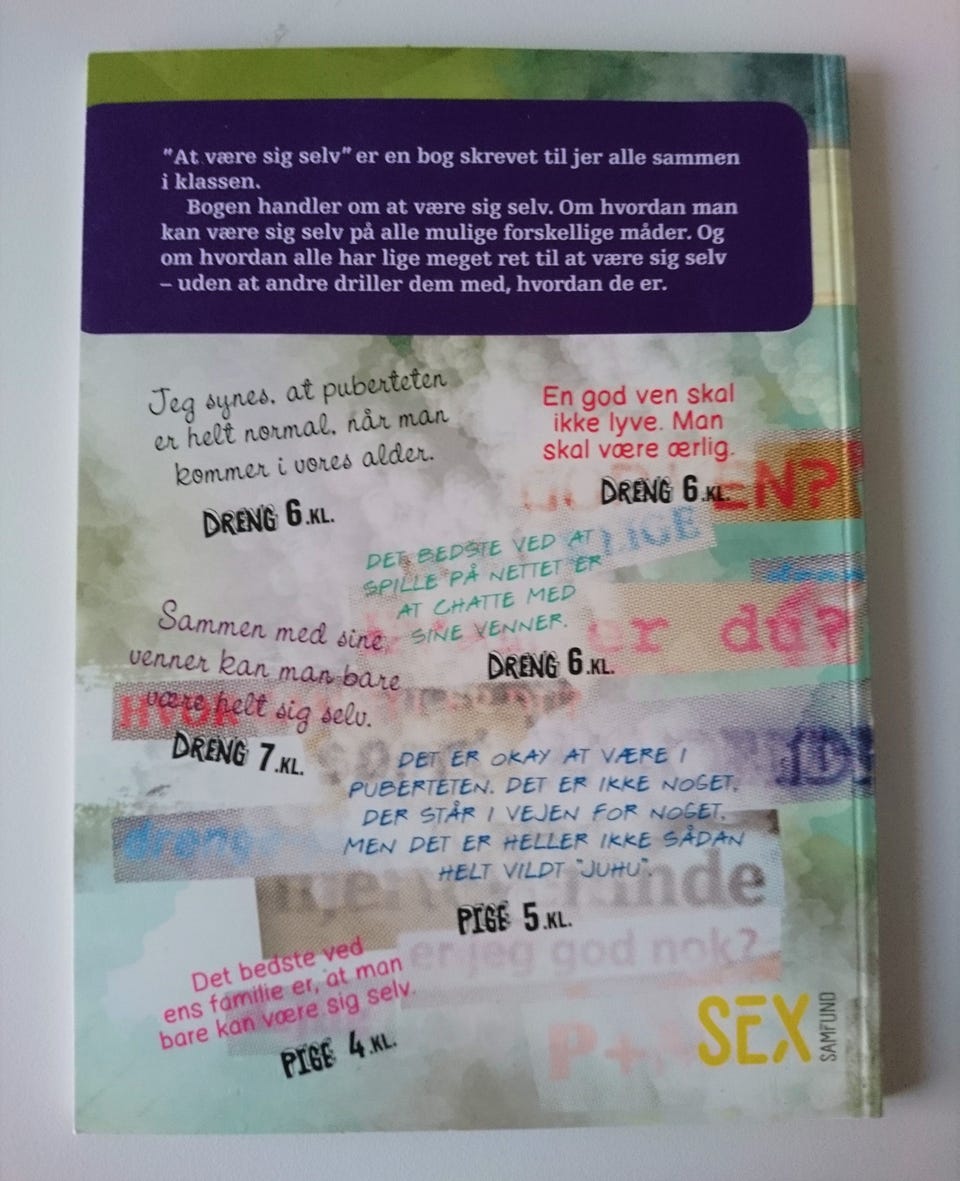 "At være sig selv" er en bog skrevet til jer alle sammen
i klassen.
Bogen handler om at være sig selv. Om hvordan man
kan være sig selv på alle mulige forskellige måder. Og
om hvordan alle har lige meget ret til at være sig selv
– uden at andre driller dem med, hvordan de er.
Jeg synes, at puberteten
er helt normal, når man
kommer i vores alder.
DRENG 6.KL.
En god ven skal
ikke lyve. Man
skal være ærlig.
DRENG 6.KL.
EN?
LIGE
DET BEDSTE VED AT
SPILLE PÅ NETTET ER
AT CHATTE MED
SINE VENNER.
DRENG 6.KL.
er då?
Sammen med sine
venner kan man bare
være helt sig selv.
DRENG 7.KL.
HVOR
DET ER OKAY AT VÆRE I
PUBERTETEN. DET ER IKKE NOGET,
DER STÅR I VEJEN FOR NOGET.
MEN DET ER HELLER IKKE SÅDAN
HELT VILDT "JUHU".
PIGE 5.KL.
drenge
nde
er jeg god nok?
Det bedste ved
ens familie er, at man
bare kan være sig selv.
PIGE 4.KL.
P+
SEX
SAMFUND